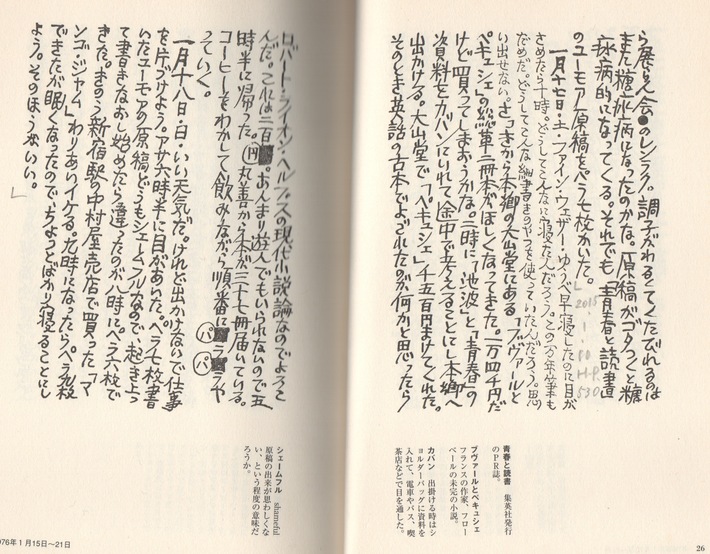 ら展覧会●のレンラク。調子がわるくてくたびれるのは
また糖尿病になったのかな。原稿がゴタつくと糖
尿病的になってくる。それでも「青春と読書
のユーモア原稿をペラ七枚かいた。
一月十七日・土・ファイン・ウェザー・ゆうべ早寝したのに目が
さめたら十時。どうしてこんなに寝たんだろう。この万年筆も
だめだ。どうしてこんな細書きのやつを使っていたんだろう。思
い出せない。さっきから本郷の大山堂にある「ブヴァールと
ペキュシェ」の総革二冊本がほしくなってきた。一万四千円だ
けど買ってしまおうかな。二時に「池波」と「青春」の
資料をカバンにいれて途中で考えることにし本郷へ
出かける。大山堂で「ペキュシェ」千五百円まけてくれた。
そのとき英語の古本でよごれたのが何かと思ったら
2015
1・10
H.P.
530
青春と読書 集英社発行
のPR誌。
ブヴァールとペキュシェ
フランスの作家、フロー
ベールの未完の小説。
カバン 出掛ける時はシ
ョルダーバッグに資料を
入れて、電車やバス、喫
茶店などで目を通した。
26
ロバート・ライオン・ヘルプスの現代小説論なのでよろこ
んだ。これは二百円。あんまり遊んでもいられないので五
時半に帰った。丸善から本が三十七冊届いている。
コーヒーをわかして飲みながら順番にパラパラや
っていく。
一月十八日・日・いい天気だ。けれど出かけないで仕事
を片づけよう。アサ六時半に目があいた。ペラ七枚書
いたユーモアの原稿どうもシェームフルなので、起き上っ
て書きなおし始めたら違ったのが八時にペラ六枚で
きた。きのう新宿駅の中村屋売店で買った「マ
ンゴ・ジャム」わりあいイケる。九時になったらペラ九枚
できたが眠くなったので、ちょっとばかり寝ることにし
よう。そのほうがいい。
」
シェームフル shameful
原稿の出来が思わしくな
い、という程度の意味だ
ろうか。
976年1月15日〜21日